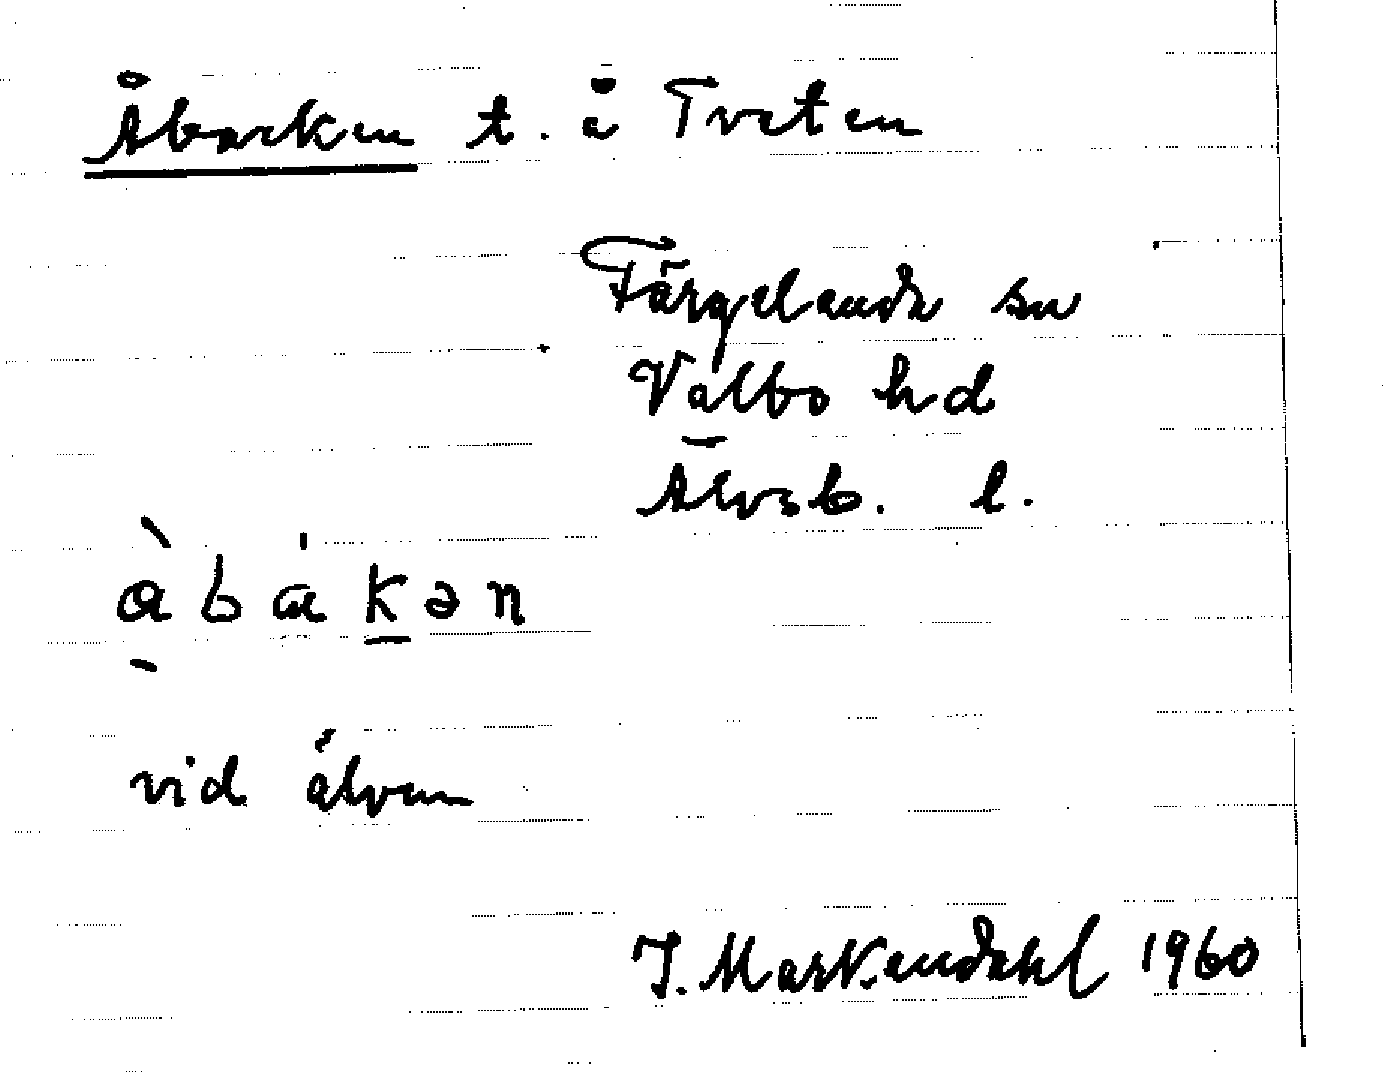 Åbacken t. å Tveten
Färgelanda sn
Valbo hd
Älvsb. l.
vid älven
J. Markendahl 1960